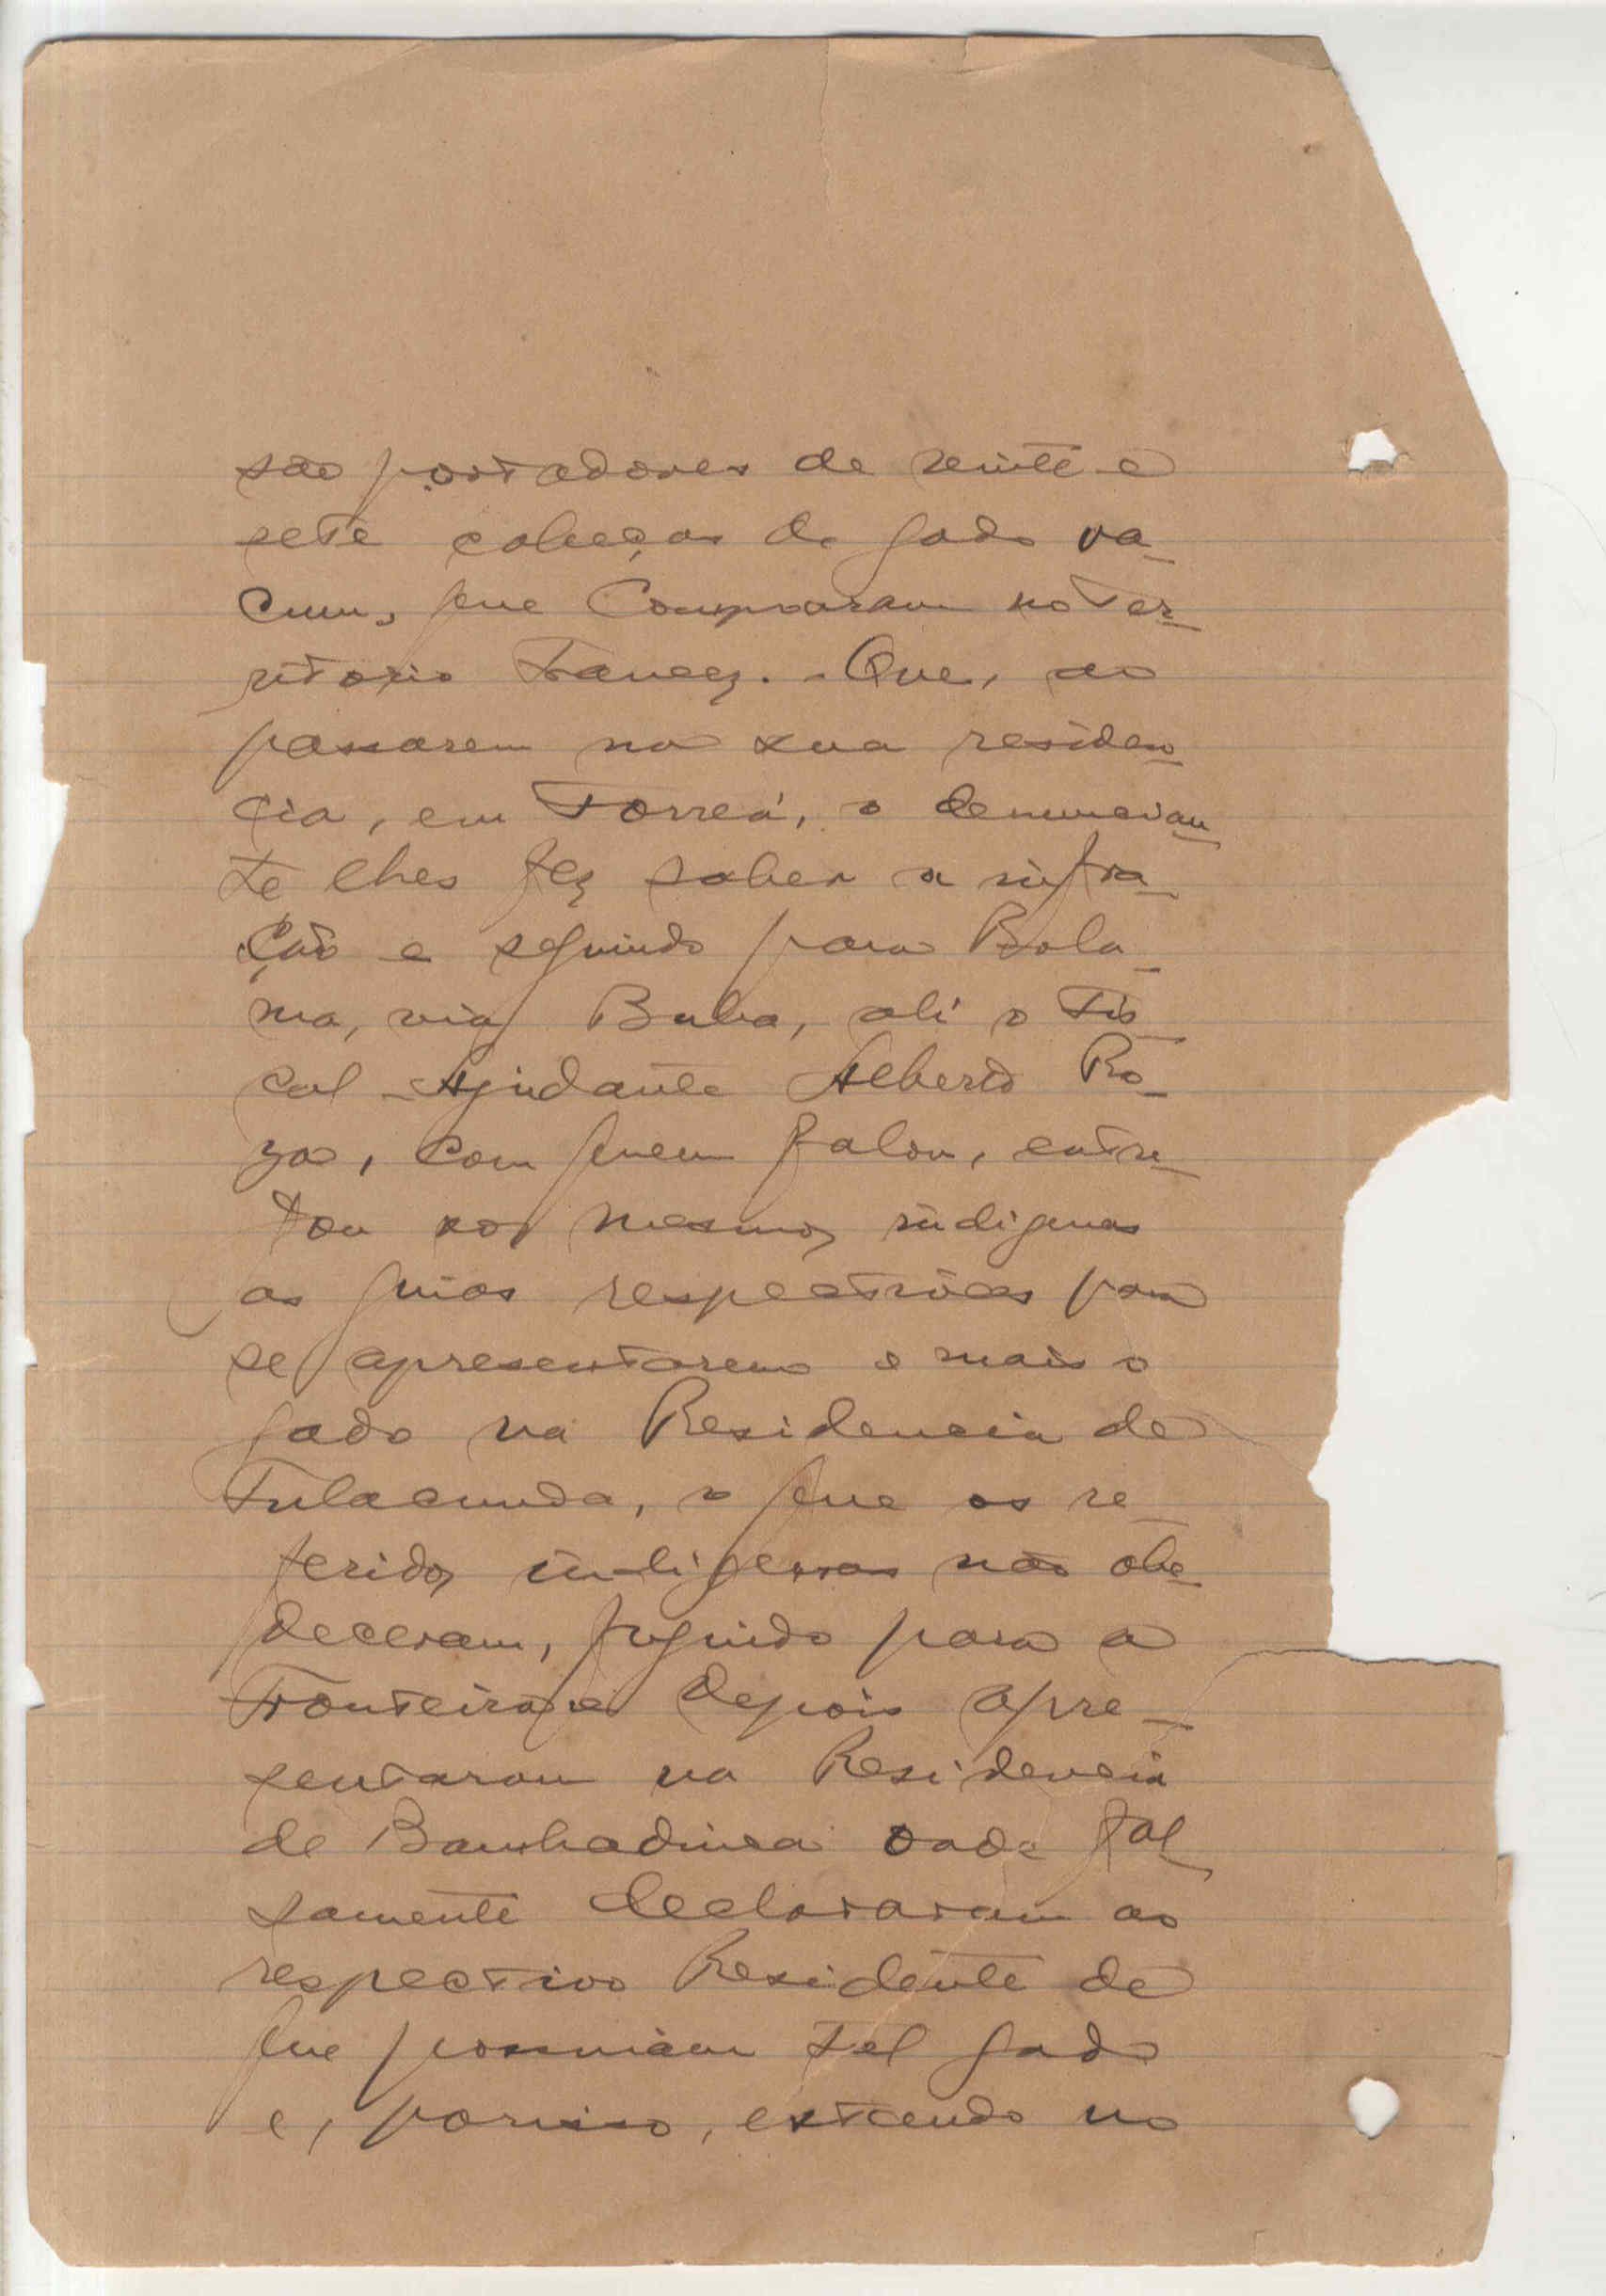 são portadores de vinte e
sete cabeças de gado va-
cum, que compraram no ter-
ritorio Francez. - Que, ao
passarem na sua residen-
cia, em Forreá, o denuncian-
te lhes fez saber a infra-
ção e seguindo para Bola-
ma, via Buba, ali o Fis-
cal Ajudante Alberto Ro-
zo, com quem falou, entre-
gou aos mesmos indigenas
as guias respectivas para
se apresentarem e mais o
gado na Residencia de
Fulacunda, o que os re-
feridos indigenas não obe-
deceram, fugindo para a
Fronteira e depois apre-
sentaram na Residencia
de Bambadinca onde fal-
samente declararam ao
respectivo Residente de
que possuiam tal gado
e, porisso, estando no